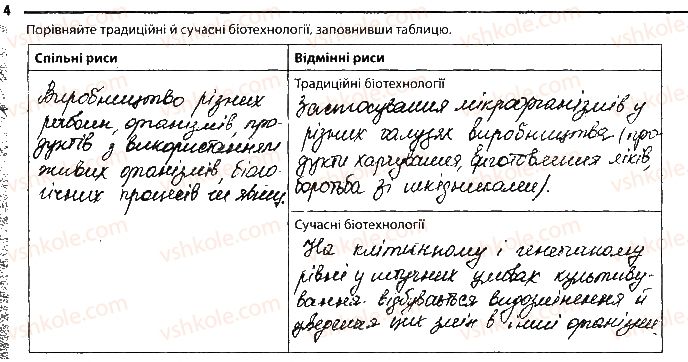 4
Порівняйте традиційні й сучасні біотехнології, заповнивши таблицю.
Спільні риси
Виробництво різних
речовин, організмів, про-
дуктів з використанням
живих організмів, біоло-
гічних процесів чи явищ.
Відмінні риси
Традиційні біотехнології
Застосування мікроорганізмів у
різних галузях виробництва (про-
дукти харчування, виготовлення ліків,
боротьба зі шкідниками).
Сучасні біотехнології
На клітинному і генетичному
рівні у штучних умовах культиву-
вання відбувається видозмінення й
уведення цих змін в інші організми.
vshkole.com